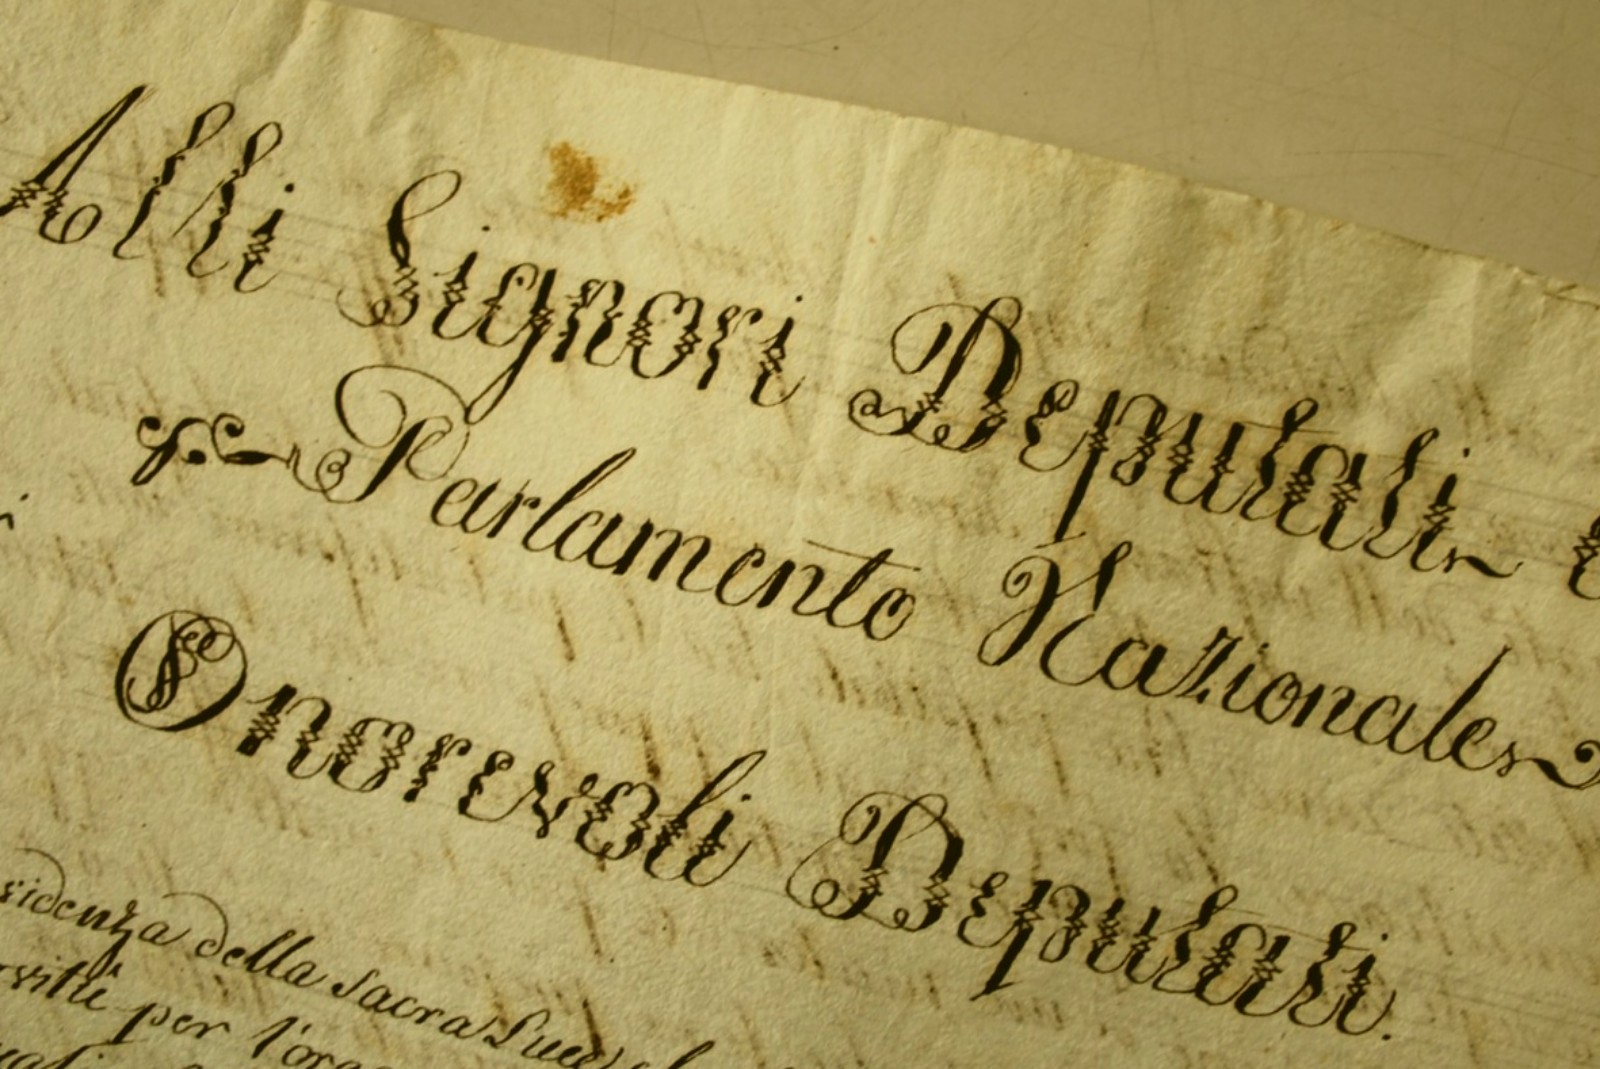 Alli Signori Deputati
Parlamento Nazionale
Onorevoli Deputati.
della Sacra Luce
per